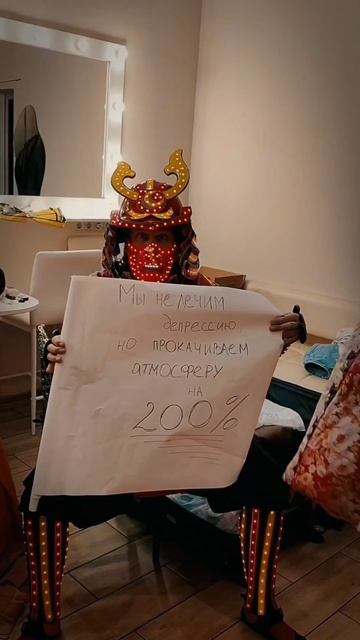 Мы не лечим
депрессию,
но прокачиваем
атмосферу
на
200%